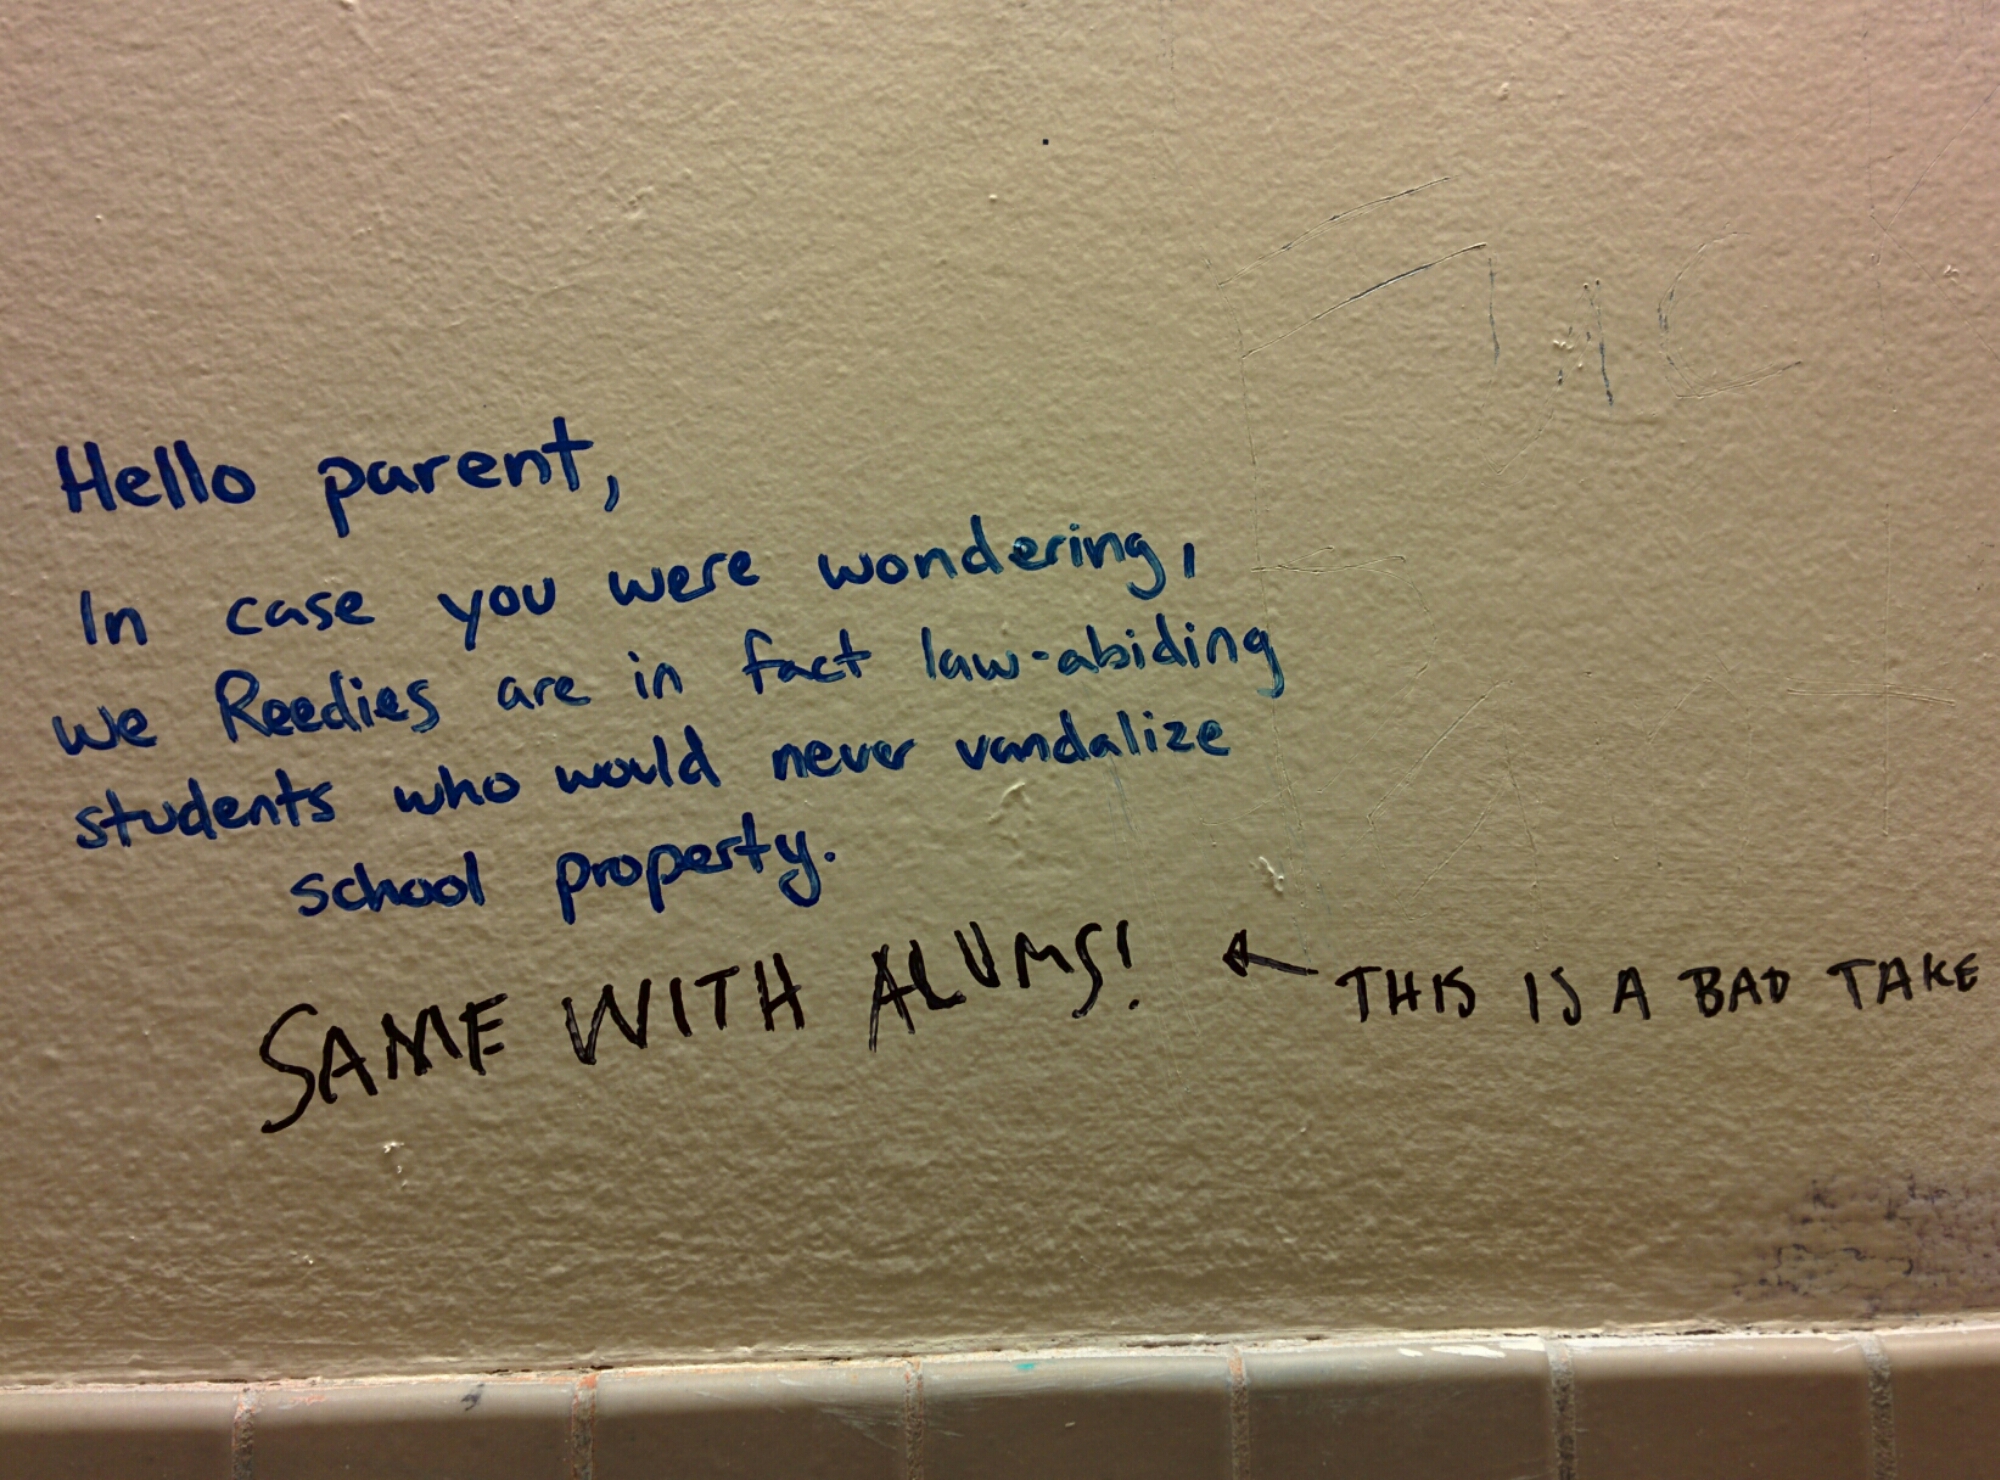 Hello parent,
In case you were wondering,
we Reedies are in fact law-abiding
students who would never vandalize
school property.
SAME WITH ALUMS!
THIS IS A BAD TAKE